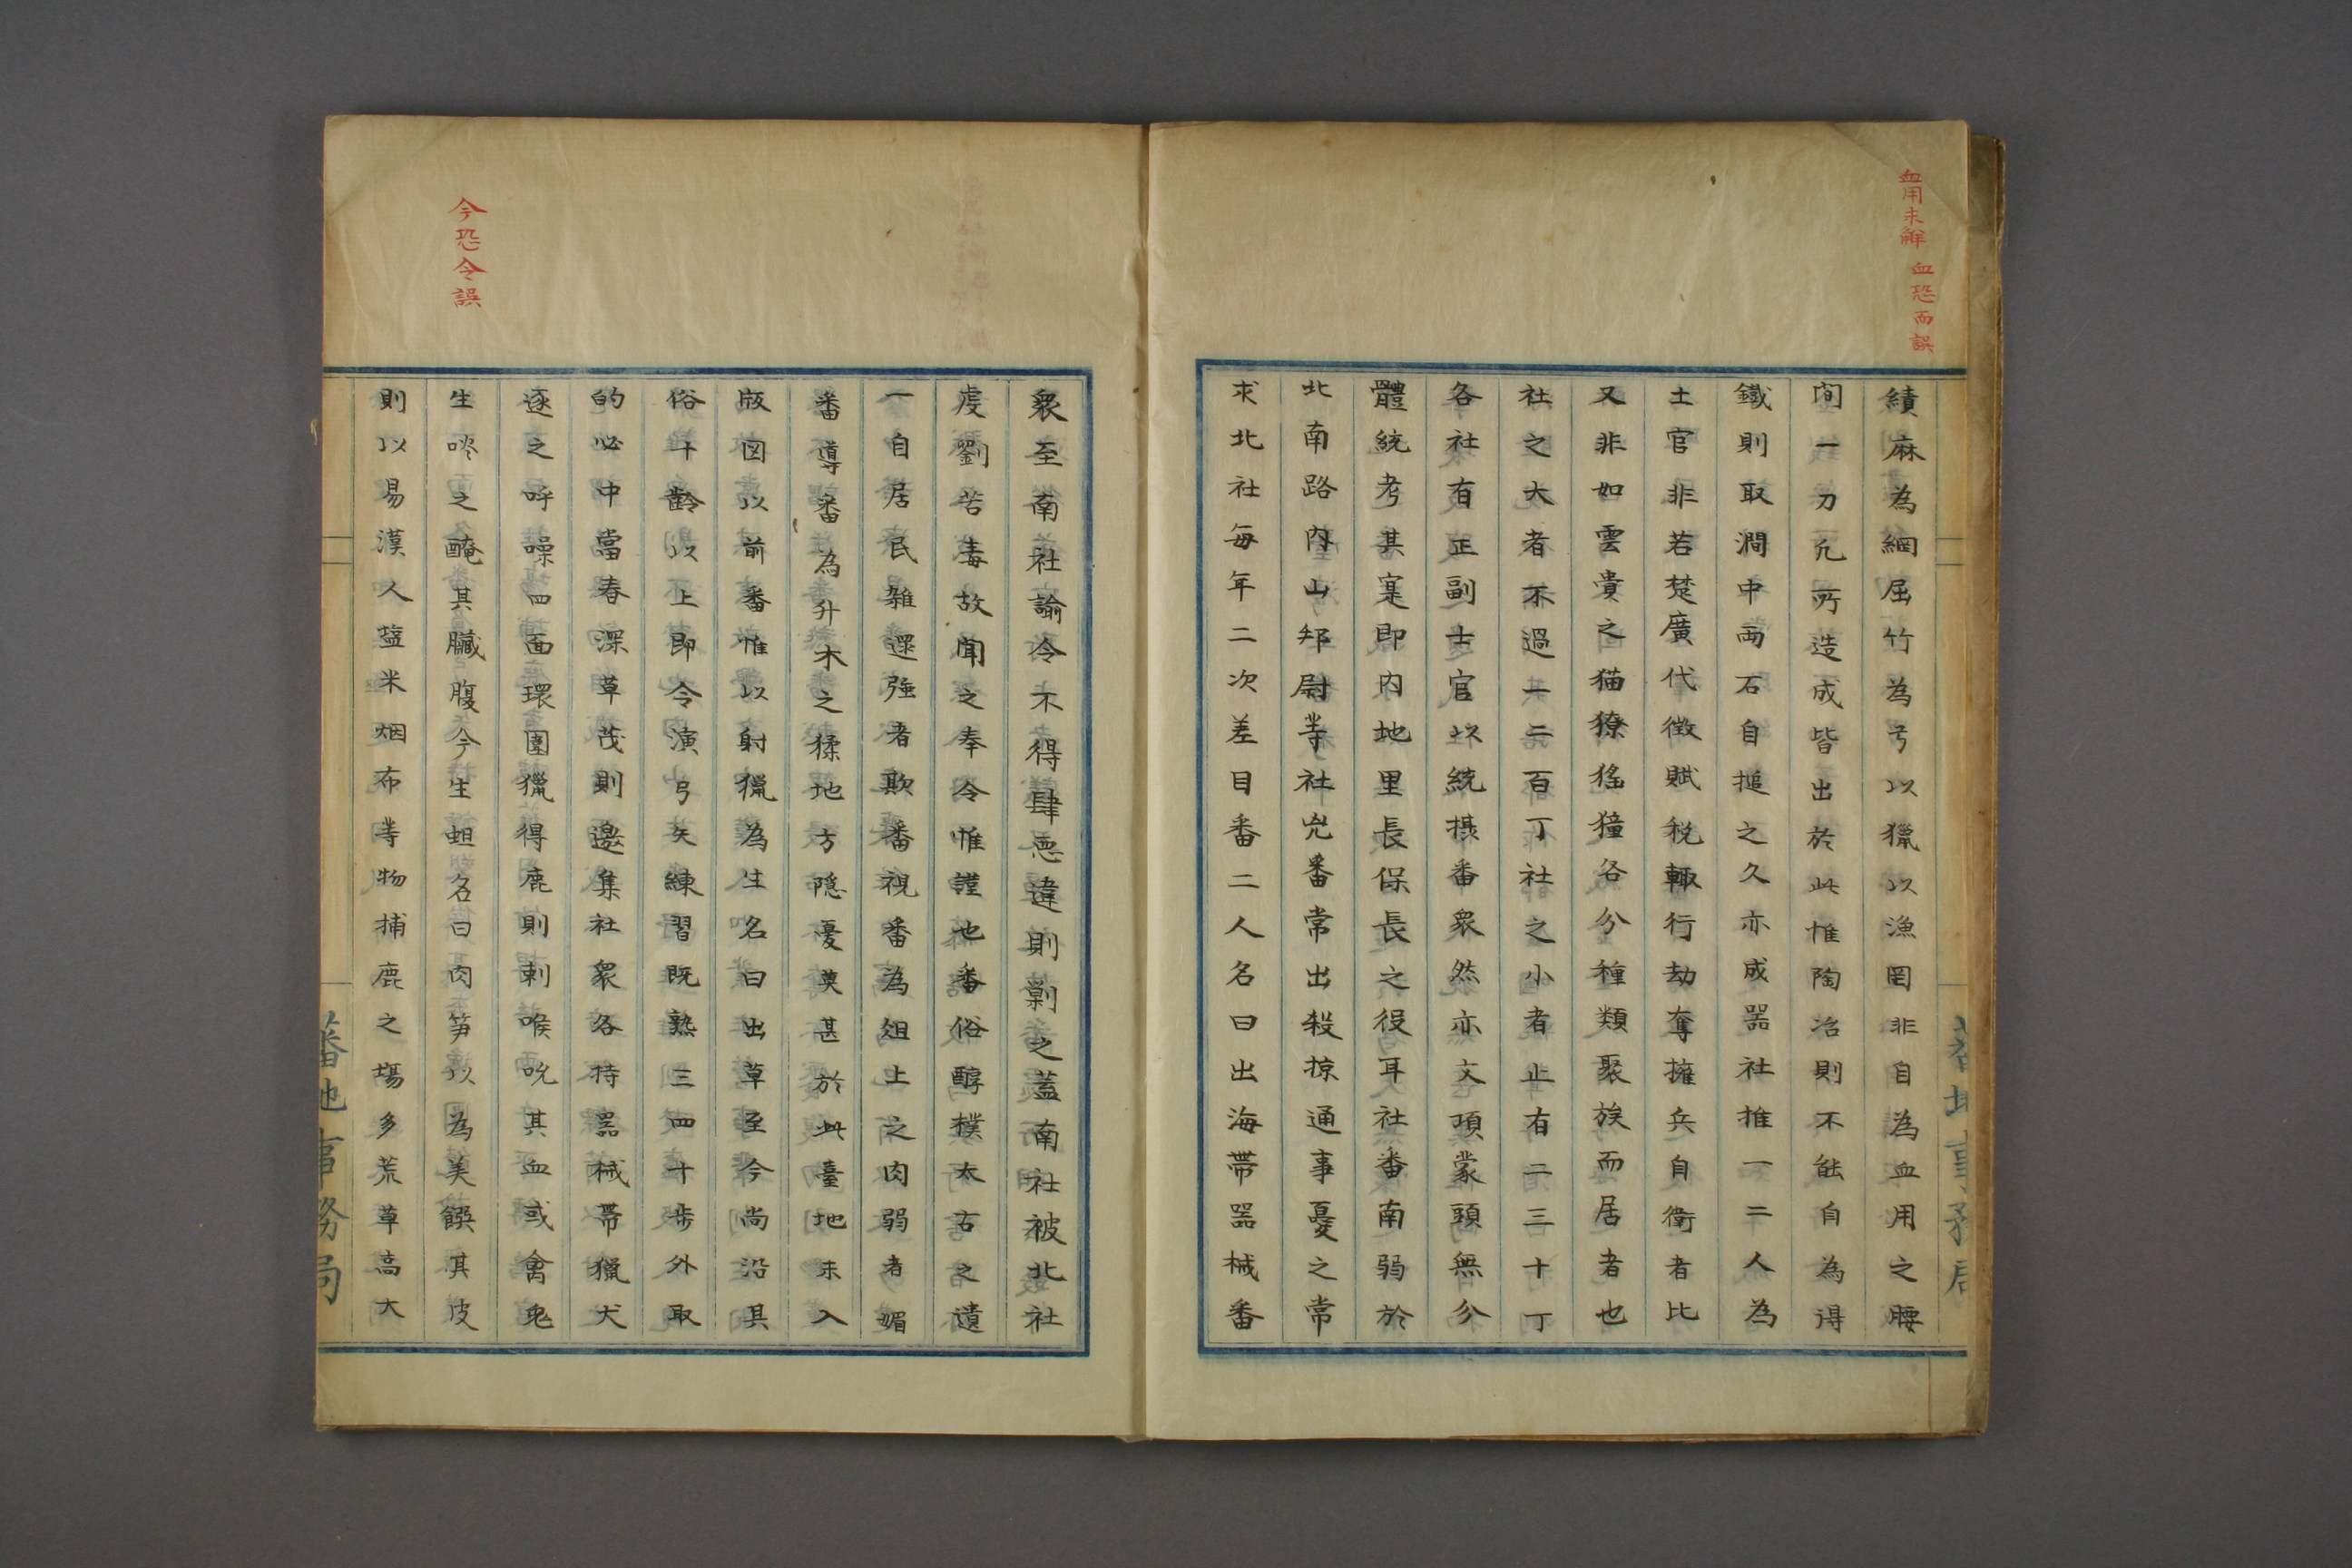 血用未解
血恐而誤
績麻為綱屈竹為弓以獵以漁罔非自為血用之腰
間一刀凢所造成皆出於此惟陶冶則不能自為得
鐵則取澗中兩石自搥之久亦成噐社推一二人為
土官非若楚廣代徴賦税輙行劫奪擁兵自衛者比
又非如雲貴之猫獠猺獞各分種類聚族而居者也
社之大者不過一二百丁社之小者止有二三十丁
各社有正副士官以統攝番衆然亦文項蒙頭無分
體統考其寔即内地里長保長之役耳社番南弱於
北南路内山郍尉等社兇番常出殺掠通事憂之常
求北社每年二次差目番二人名曰出海帶噐械番
衆至南社諭令不得肆悪違則剿之蓋南社被北社
虔劉苦毒故聞之奉令惟謹也番俗醇樸太古之遺
一自居民雜遝強者欺番視番為俎上之肉弱者媚
番導番為升木之猱地方隱憂莫甚於此臺地未入
版図以前番惟以射獵為生名曰出草至今尚沿其
俗十齡以上即令演弓矢練習既熟三四十步外取
的必中當春深草茂則邀集社衆各持噐械帶獵犬
逐之呼噪四面環圍獵得鹿則刺喉吮其血或禽兎
生啖之醃其臟腹今生蛆名曰肉笋以為美饌其皮
則以易漢人盬米烟布等物捕鹿之塲多荒草高大
今恐令誤
蕃地事務局